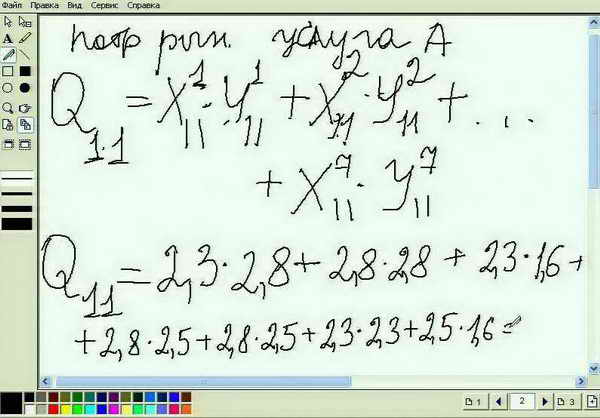 Файл Правка Вид Сервис Справка
потр рын. услуга А
Q₁.₁ = X¹₁₁·Y¹₁₁ + X²₁₁·Y²₁₁ + ...
+ X⁷₁₁·Y⁷₁₁
Q₁₁ = 2,3·2,8 + 2,8·2,8 + 2,3·1,6 +
+ 2,8·2,5 + 2,8·2,5 + 2,3·2,3 + 2,5·1,6 =
1 2 3